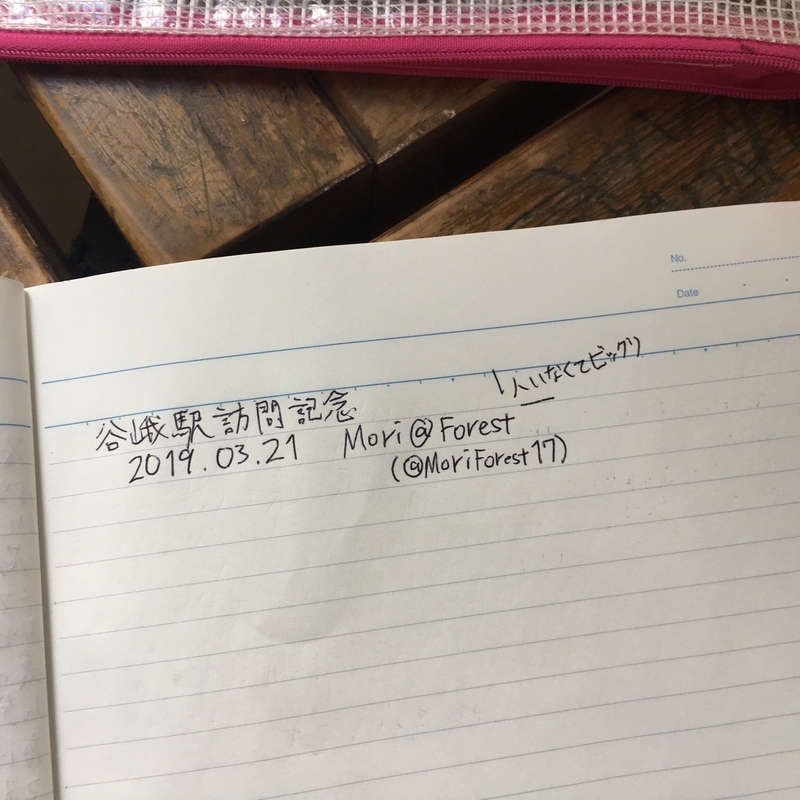 No.
Date
人いなくてビックリ
谷峨駅訪問記念
2019.03.21 Mori@Forest
(@MoriForest17)